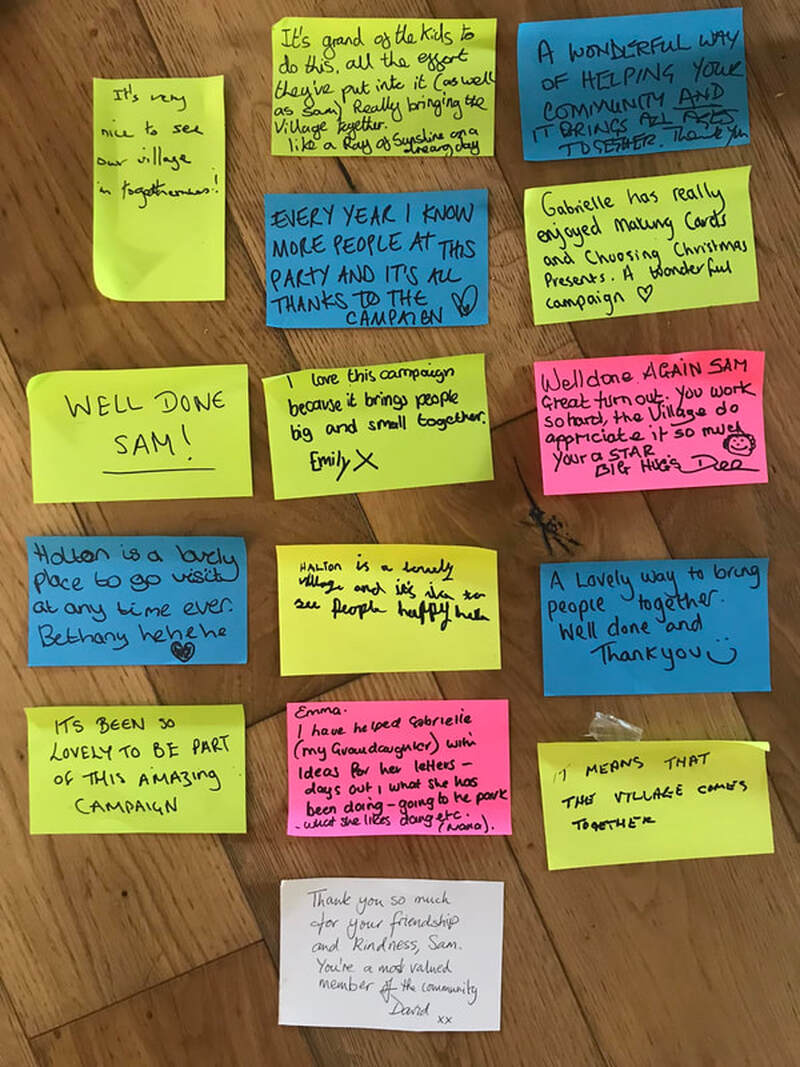 It's very
nice to see
our village
in togetherness!
It's grand of the kids to
do this, all the effort
they've put into it (as well
as Sam) Really bringing the
Village together.
like a Ray of Sunshine on a
dreary day
A WONDERFUL WAY
OF HELPING YOUR
COMMUNITY AND
IT BRINGS ALL AGES
TOGETHER. Thank You
EVERY YEAR I KNOW
MORE PEOPLE AT THIS
PARTY AND IT'S ALL
THANKS TO THE
CAMPAIGN
Gabrielle has really
enjoyed Making Cards
and Choosing Christmas
Presents. A wonderful
campaign
WELL DONE
SAM!
I love this campaign
because it brings people
big and small together.
Emily X
Well done AGAIN SAM
Great turn out. You work
so hard, the Village do
appriciate it so much
Your a STAR
BIG HUGS
Holton is a lovely
place to go visit
at any time ever.
Bethany hehehe
HALTON is a lovely
village and it's
see people happy
A Lovely way to bring
people together.
Well done and
Thankyou
ITS BEEN SO
LOVELY TO BE PART
OF THIS AMAZING
CAMPAIGN
Emma.
I have helped Gabrielle
(my Grandaughter) with
Ideas for her letters -
days out, what she has
been doing - going to the park
- what she likes doing etc.
(Nana).
IT MEANS THAT
THE VILLAGE COMES
TOGETHER
Thank you so much
for your friendship
and kindness, Sam.
You're a most valued
member of the community
David
xx